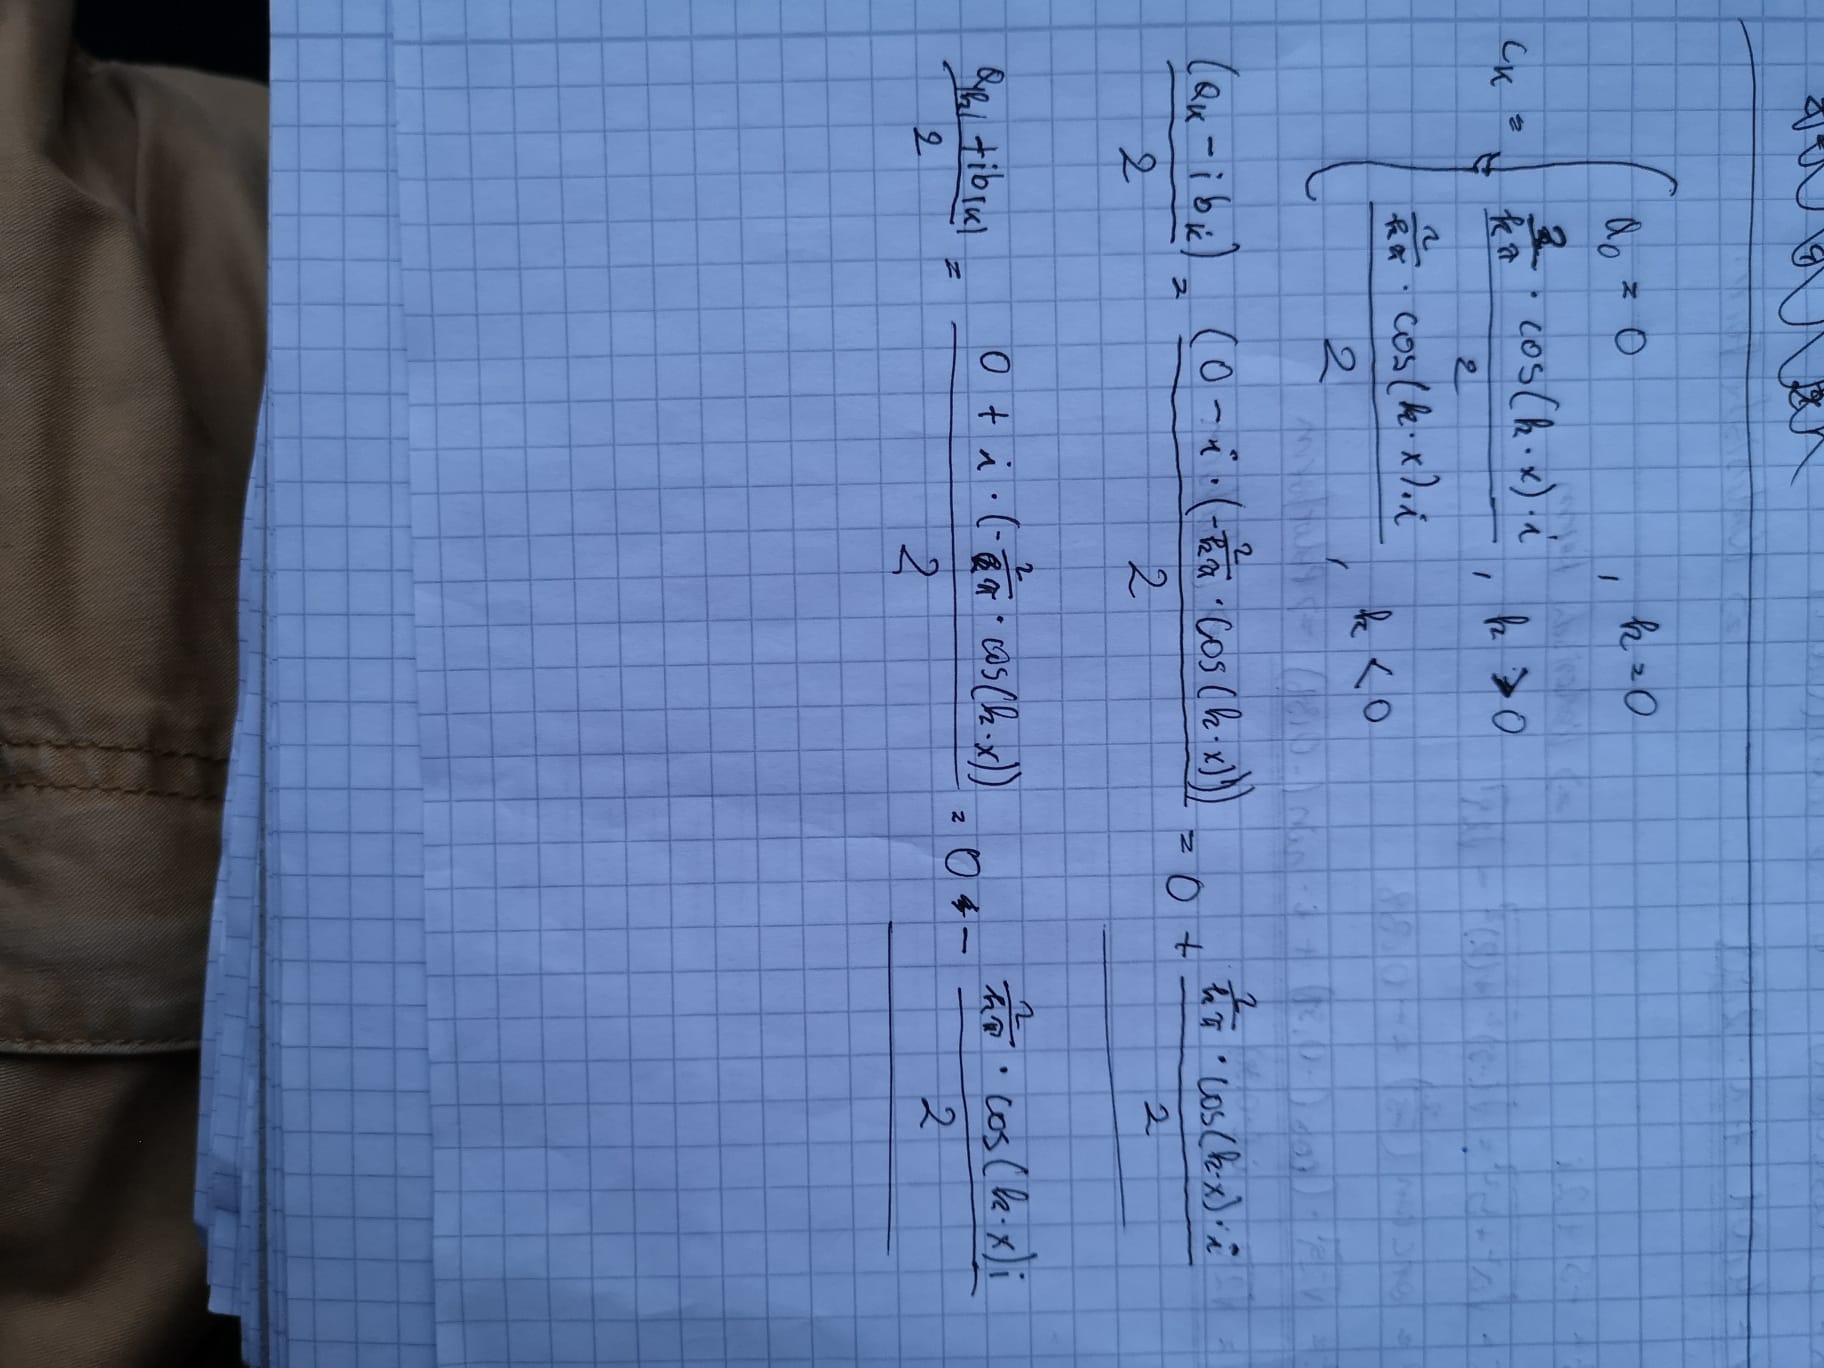 c_k = { a_0 = 0 , k = 0
\frac{\frac{2}{kπ} · cos(k · x) · i}{2} , k > 0
\frac{\frac{2}{kπ} · cos(k · x) · i}{2} , k < 0
\frac{(a_k - i b_k)}{2} = \frac{(0 - i · (-\frac{2}{kπ} · cos(k · x)))}{2} = 0 + \frac{\frac{2}{kπ} · cos(k·x) · i}{2}
\frac{a_{|k|} + i b_{|k|}}{2} = \frac{0 + i · (-\frac{2}{kπ} · cos(k · x))}{2} = 0 - \frac{\frac{2}{kπ} · cos(k · x) i}{2}